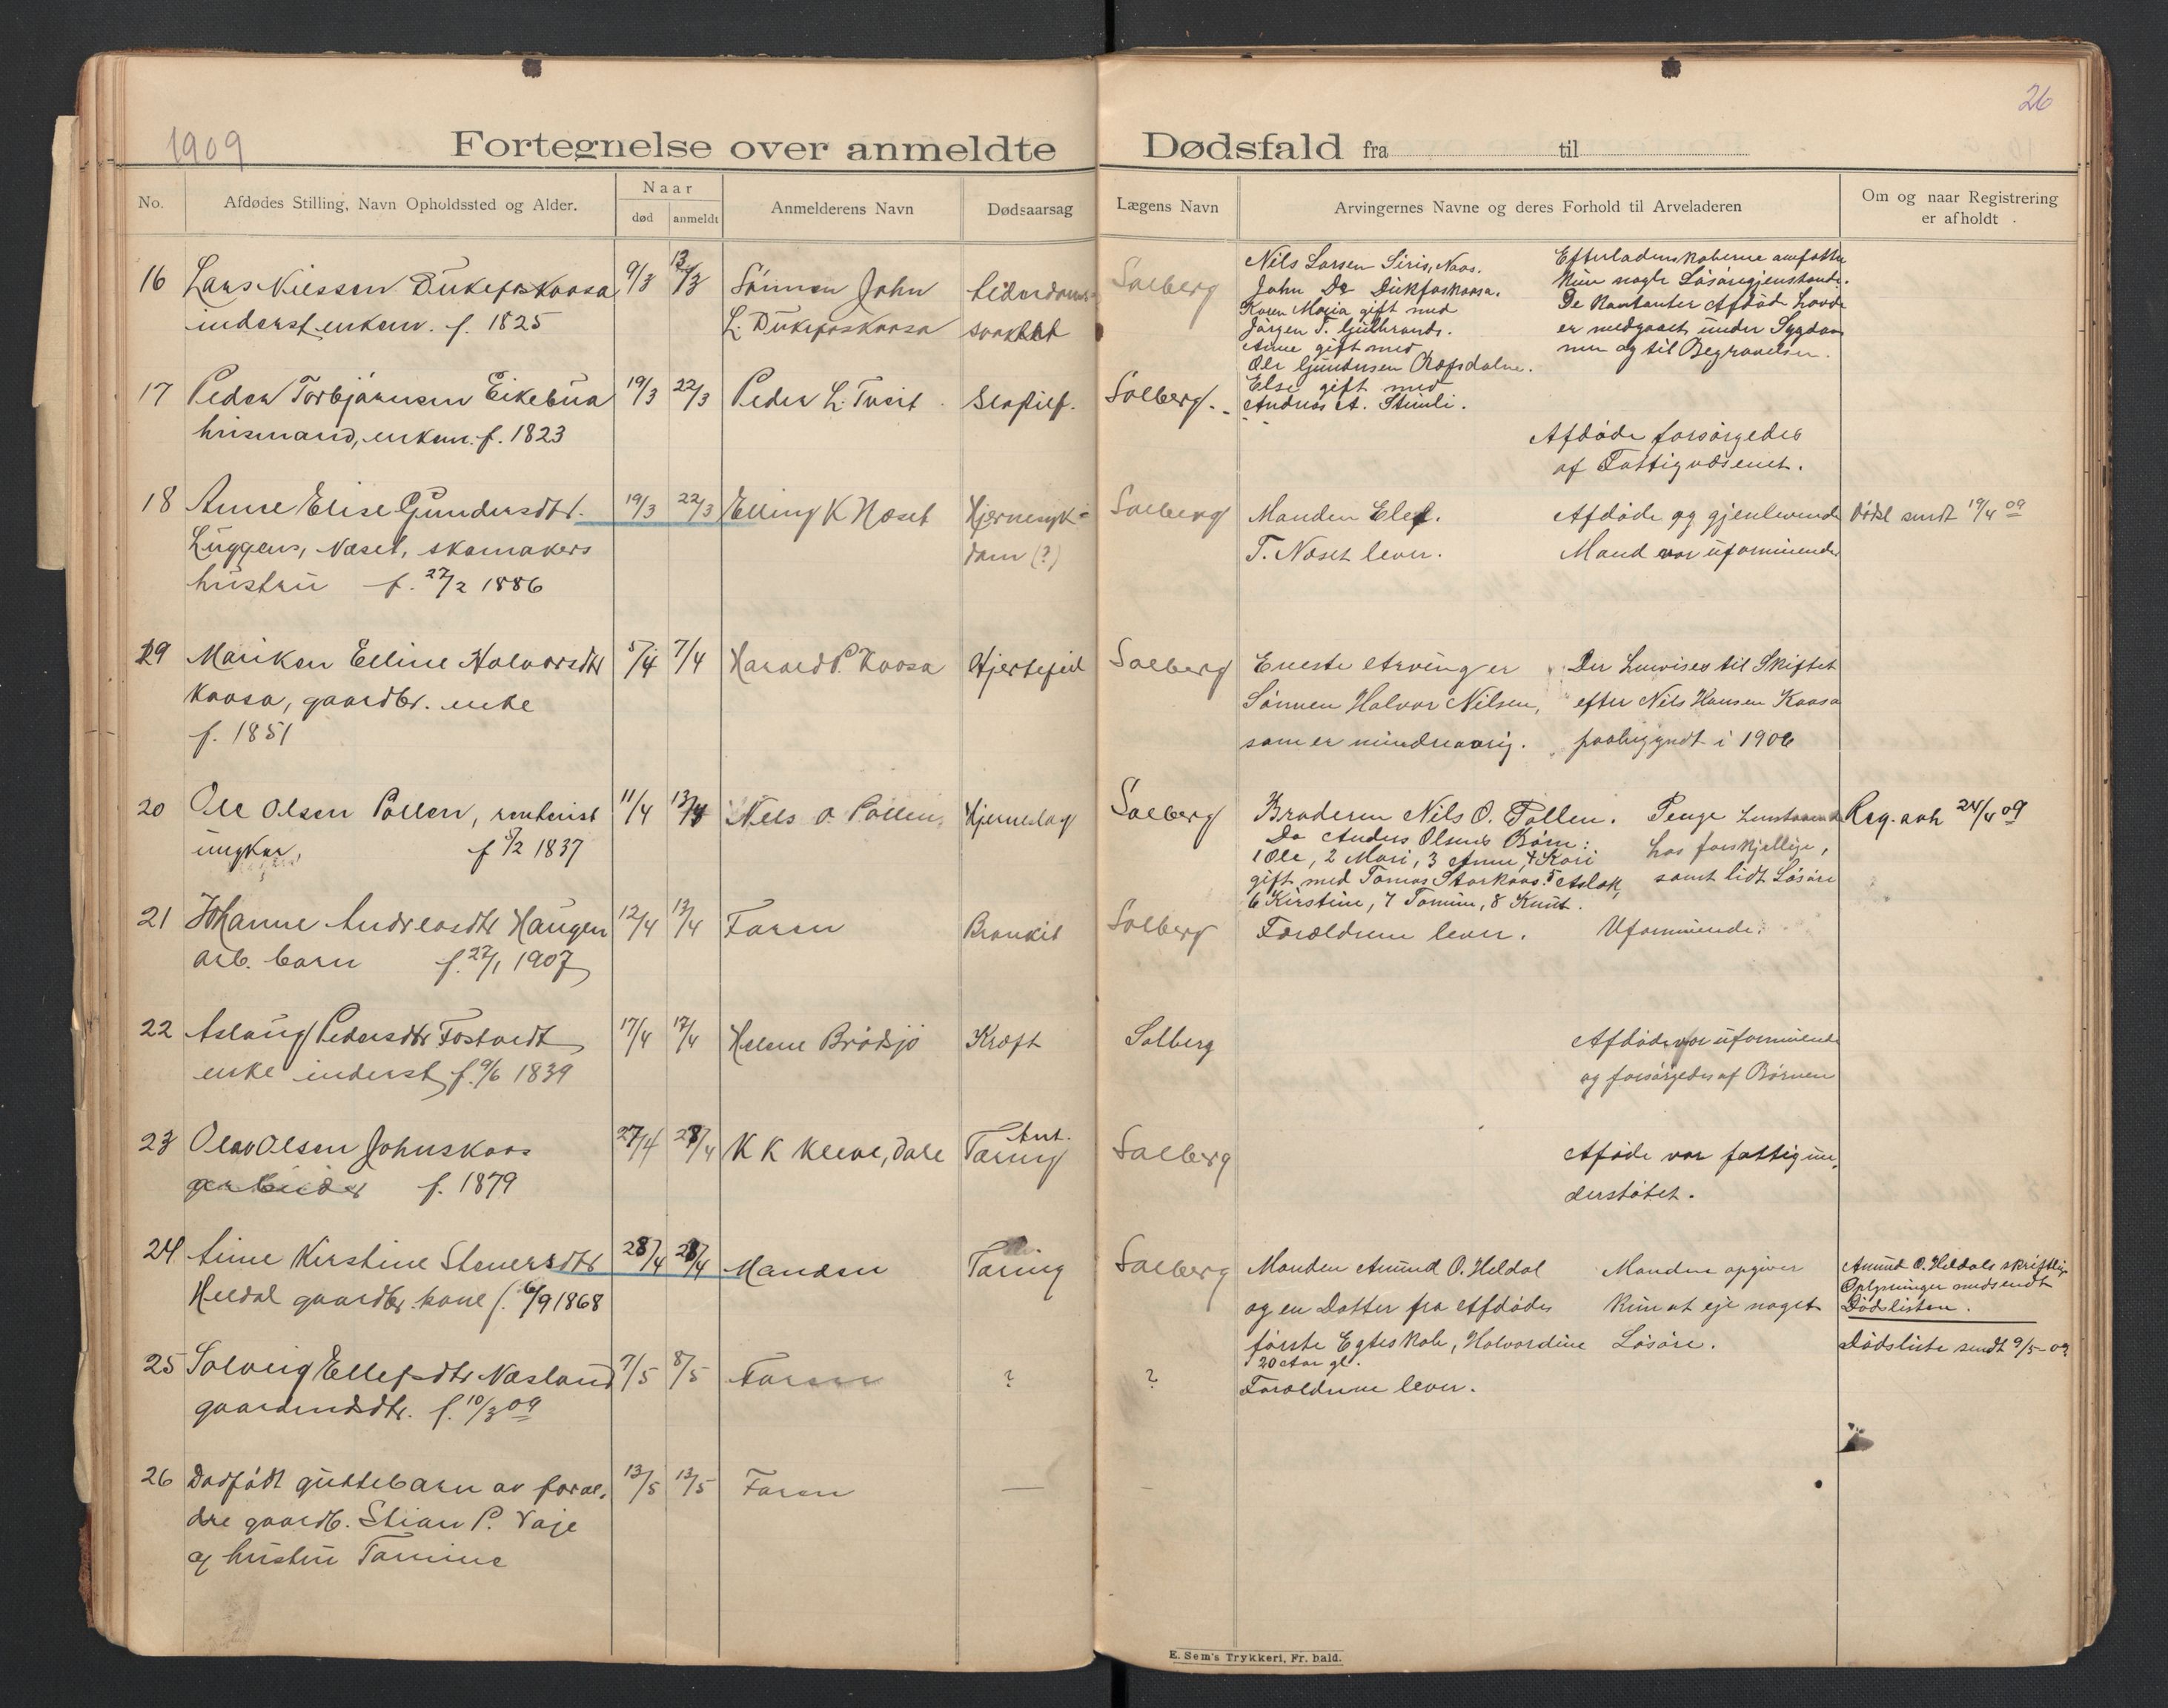 26
1909
Fortegnelse over anmeldte Dødsfald fra til
No.
Afdødes Stilling, Navn Opholdssted og Alder.
Naar
død
anmeldt
Anmelderens Navn
Dødsaarsag
Lægens Navn
Arvingernes Navne og deres Forhold til Arveladeren
Om og naar Registrering
er afholdt
16 Lars Nilssen 9/3 13/3 Sønnen John Solberg
inderst enkem. f. 1825 L.
Nils Larsen Siris, Naas.
John Do
Karen Maria gift med
Jørgen T. Gulbrands.
Anne gift med
Ole Gundersen
Else gift med
Andreas A. Stimli.
Efterladenskaberne
kun nogle Løsøregjenstande.
De Kontanter Afdøde havde
er medgaaet under Sygdom
men og til Begravelsen.
17 Peder Torbjørnsen Eikebua 19/3 22/3 Peder L. Tveit Slagtilf. Solberg.
husmand, enkem. f. 1823
Afdøde forsørgedes
af Fattigvæsenet.
18 Anne Elise Gundersdtr. 19/3 22/3 Elling K Næset Hjernesyk- Solberg Manden Elef. Afdøde og gjenlevende Dødsl sendt 19/4 09
Luggens, Næset, skomakers dom (?) T. Næset lever. Mand var uformuende
hustru f. 27/2 1886
19 Mariken Elline Halvorsdtr 5/4 7/4 Harald P. Kaasa Hjertefeil Solberg Eneste Arving er Der henvises til Skiftet
Kaasa, gaardbr. enke Sønnen Halvor Nilsen, efter Nils Hansen Kaasa
f. 1851 som er mindreaarig. paabegyndt i 1906
20 Ole Olsen Pollen, rentenist 11/4 13/4 Nils O. Pollen, Hjerneslag Solberg Broderen Nils O. Pollen. Penge henstaaende Reg. avh 24/4 09
ungkar, f 5/2 1837 Do Anders Olsens Børn: hos forskjellige,
1 Ole, 2 Mari, 3 Anne, 4 Kari samt lidt Løsøre
gift med Tomas Storkaas. 5 Aslak,
6 Kirstine, 7 Tomine, 8 Knut.
21 Johanne Andreasdtr Haugen 12/4 13/4 Faren Bronkit Solberg Forældrene lever. Uformuende.
arb. barn f. 27/1 1907
22 Aslaug Pedersdtr Fostvedt 17/4 17/4 Helene Brødsjø Kræft Solberg Afdøde var uformuende
enke inderst f. 9/6 1839 og forsørgedes af Børnen
23 Olav Olsen Johnskaas 27/4 28/4 K K Kleve, Dale Ant. Tæring Solberg Afdøde var fattigun-
arbeider f. 1879 derstøtet.
24 Anne Kirstine Stenersdtr 28/4 28/4 Manden Tæring Solberg Manden Amund O. Heldal Manden opgiver Amund O. Heldals skriftlige
Heldal gaardbr. kone f. 6/9 1868 og en Datter fra Afdødes kun at eje noget Oplysninger medsendt
første Egteskab, Halvordine Løsøre. Dødslisten.
20 Aar gl.
25 Solveig Ellefsdtr Næsland 7/5 8/5 Faren ? ? Forældrene lever. Dødsliste sendt 9/5-09
gaardmdsdtr. f. 10/3 09
26 Dødfødt guttebarn av foræl- 13/5 13/5 Faren — -
dre gaardb. Stian P. Vaje
og hustru Tomine
E. Sem's Trykkeri, Fr. hald.